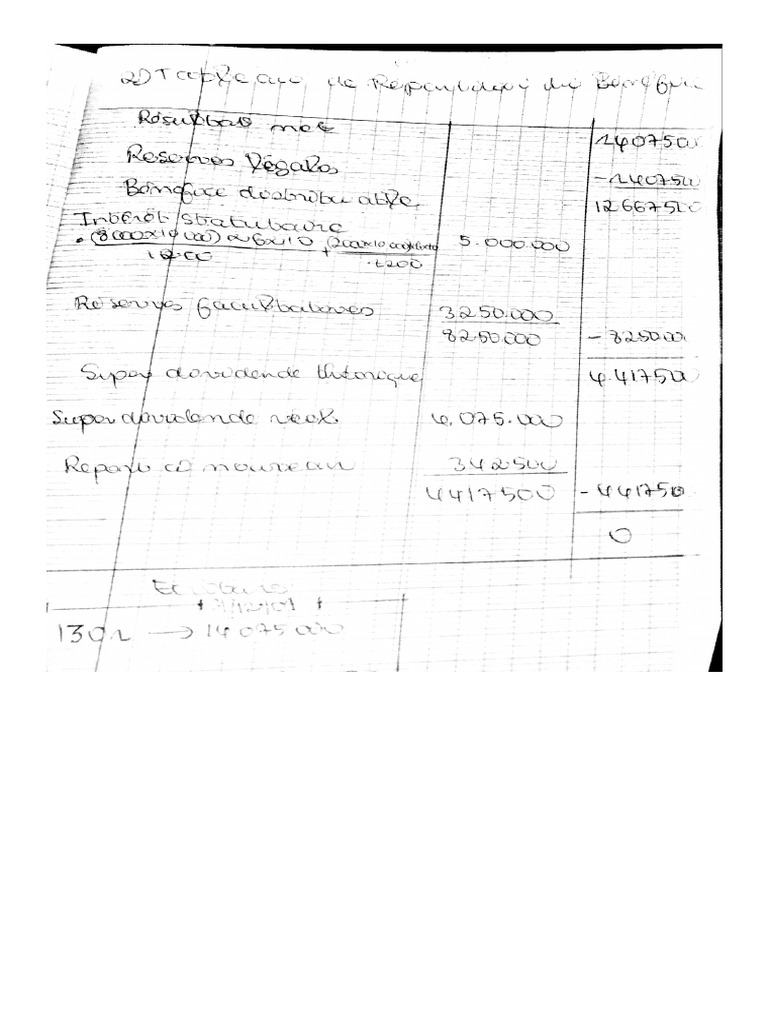 2) Tableau de Repartition du Bénéfice
Résultat net 1407500
Reserves légales -1407500
Bénéfice distribuable 12667500
Intérêt statutaire
• (8000x10 000) x 6 x 10 / 1200 + 5.000.000
Réserves facultatives 3250.000
8250.000 - 825000
Super dividende théorique 4.417500
Super dividende réel 4.075.000
Report à nouveau 342500
4417500 - 441750
0
Ecriture
1301 → 14075000